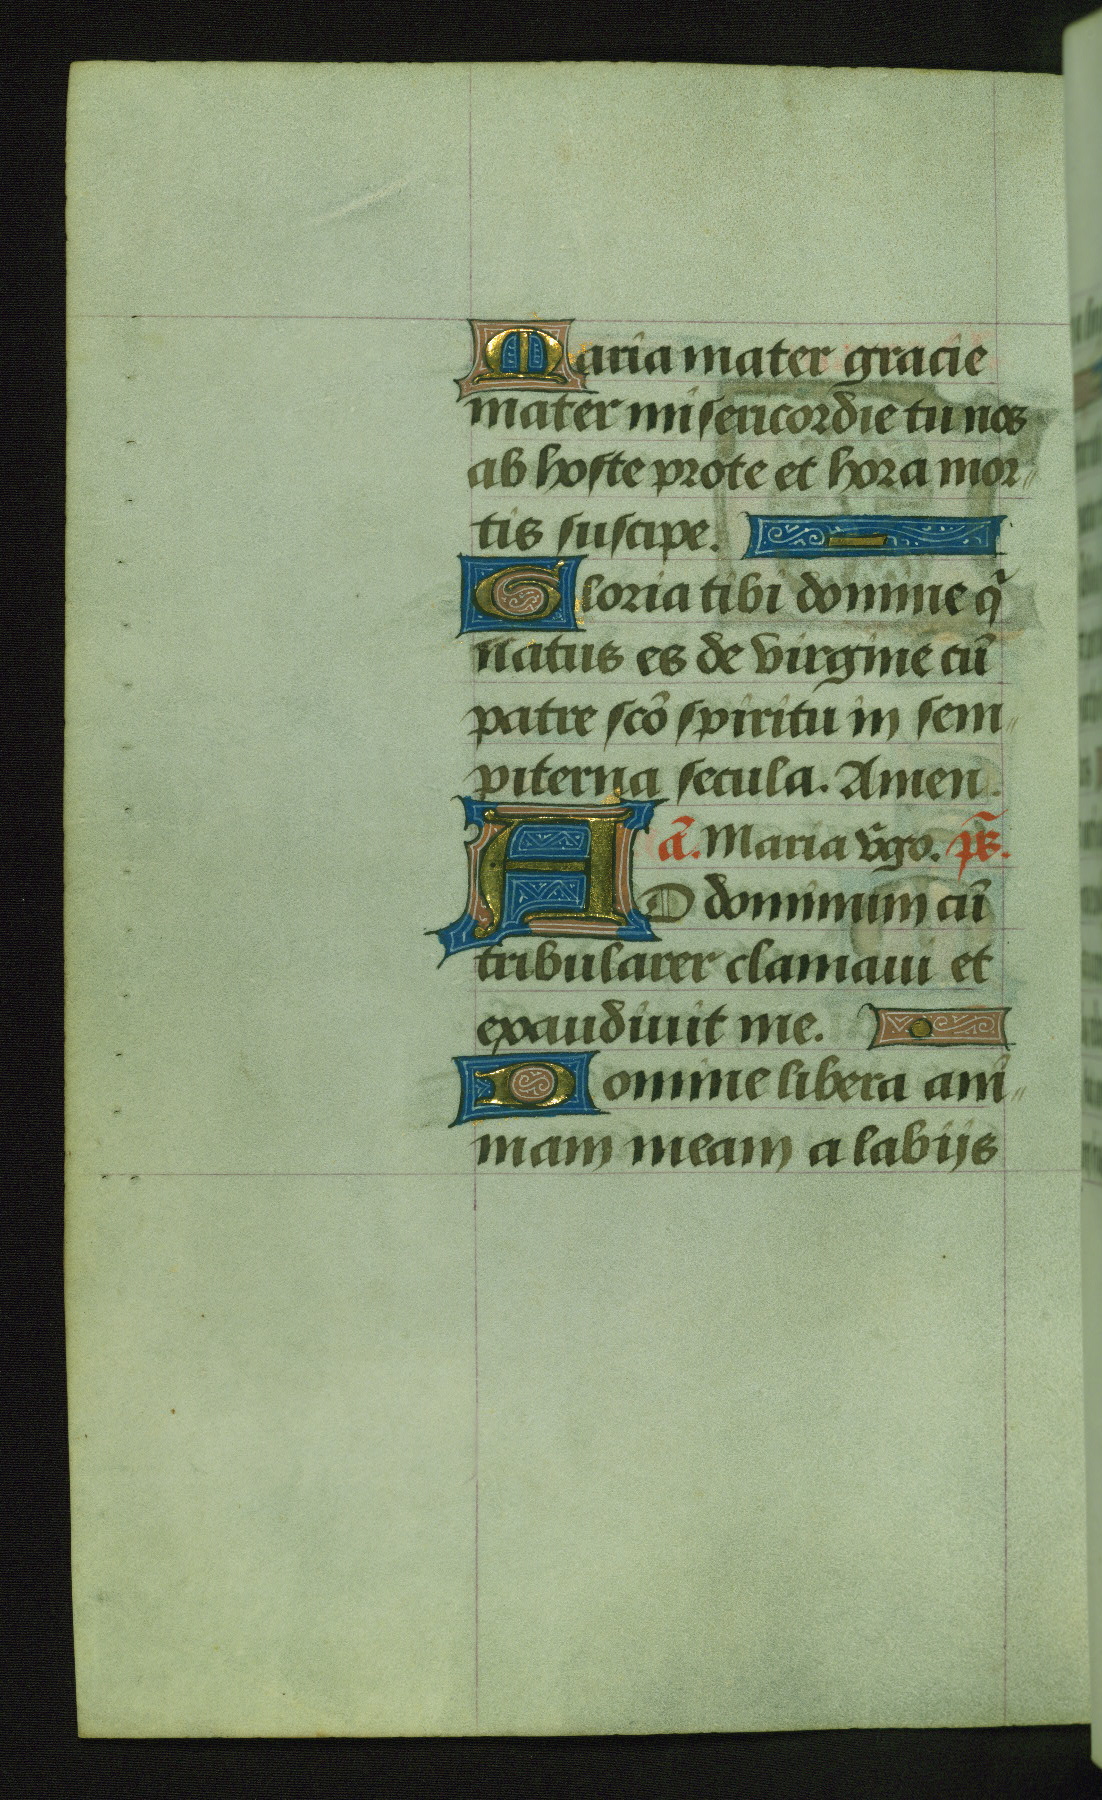 Maria mater gracie
mater misericordie tu nos
ab hoste prote et hora mor〃
tis suscipe.
Gloria tibi domine q̄
natus es de virgine cū
patre scō spiritu in sem〃
piterna secula. Amen.
ā. Maria v̄go. p̄s.
AD dominum cū
tribularer clamaui et
exaudiuit me.
Domine libera ani〃
mam meam a labijs